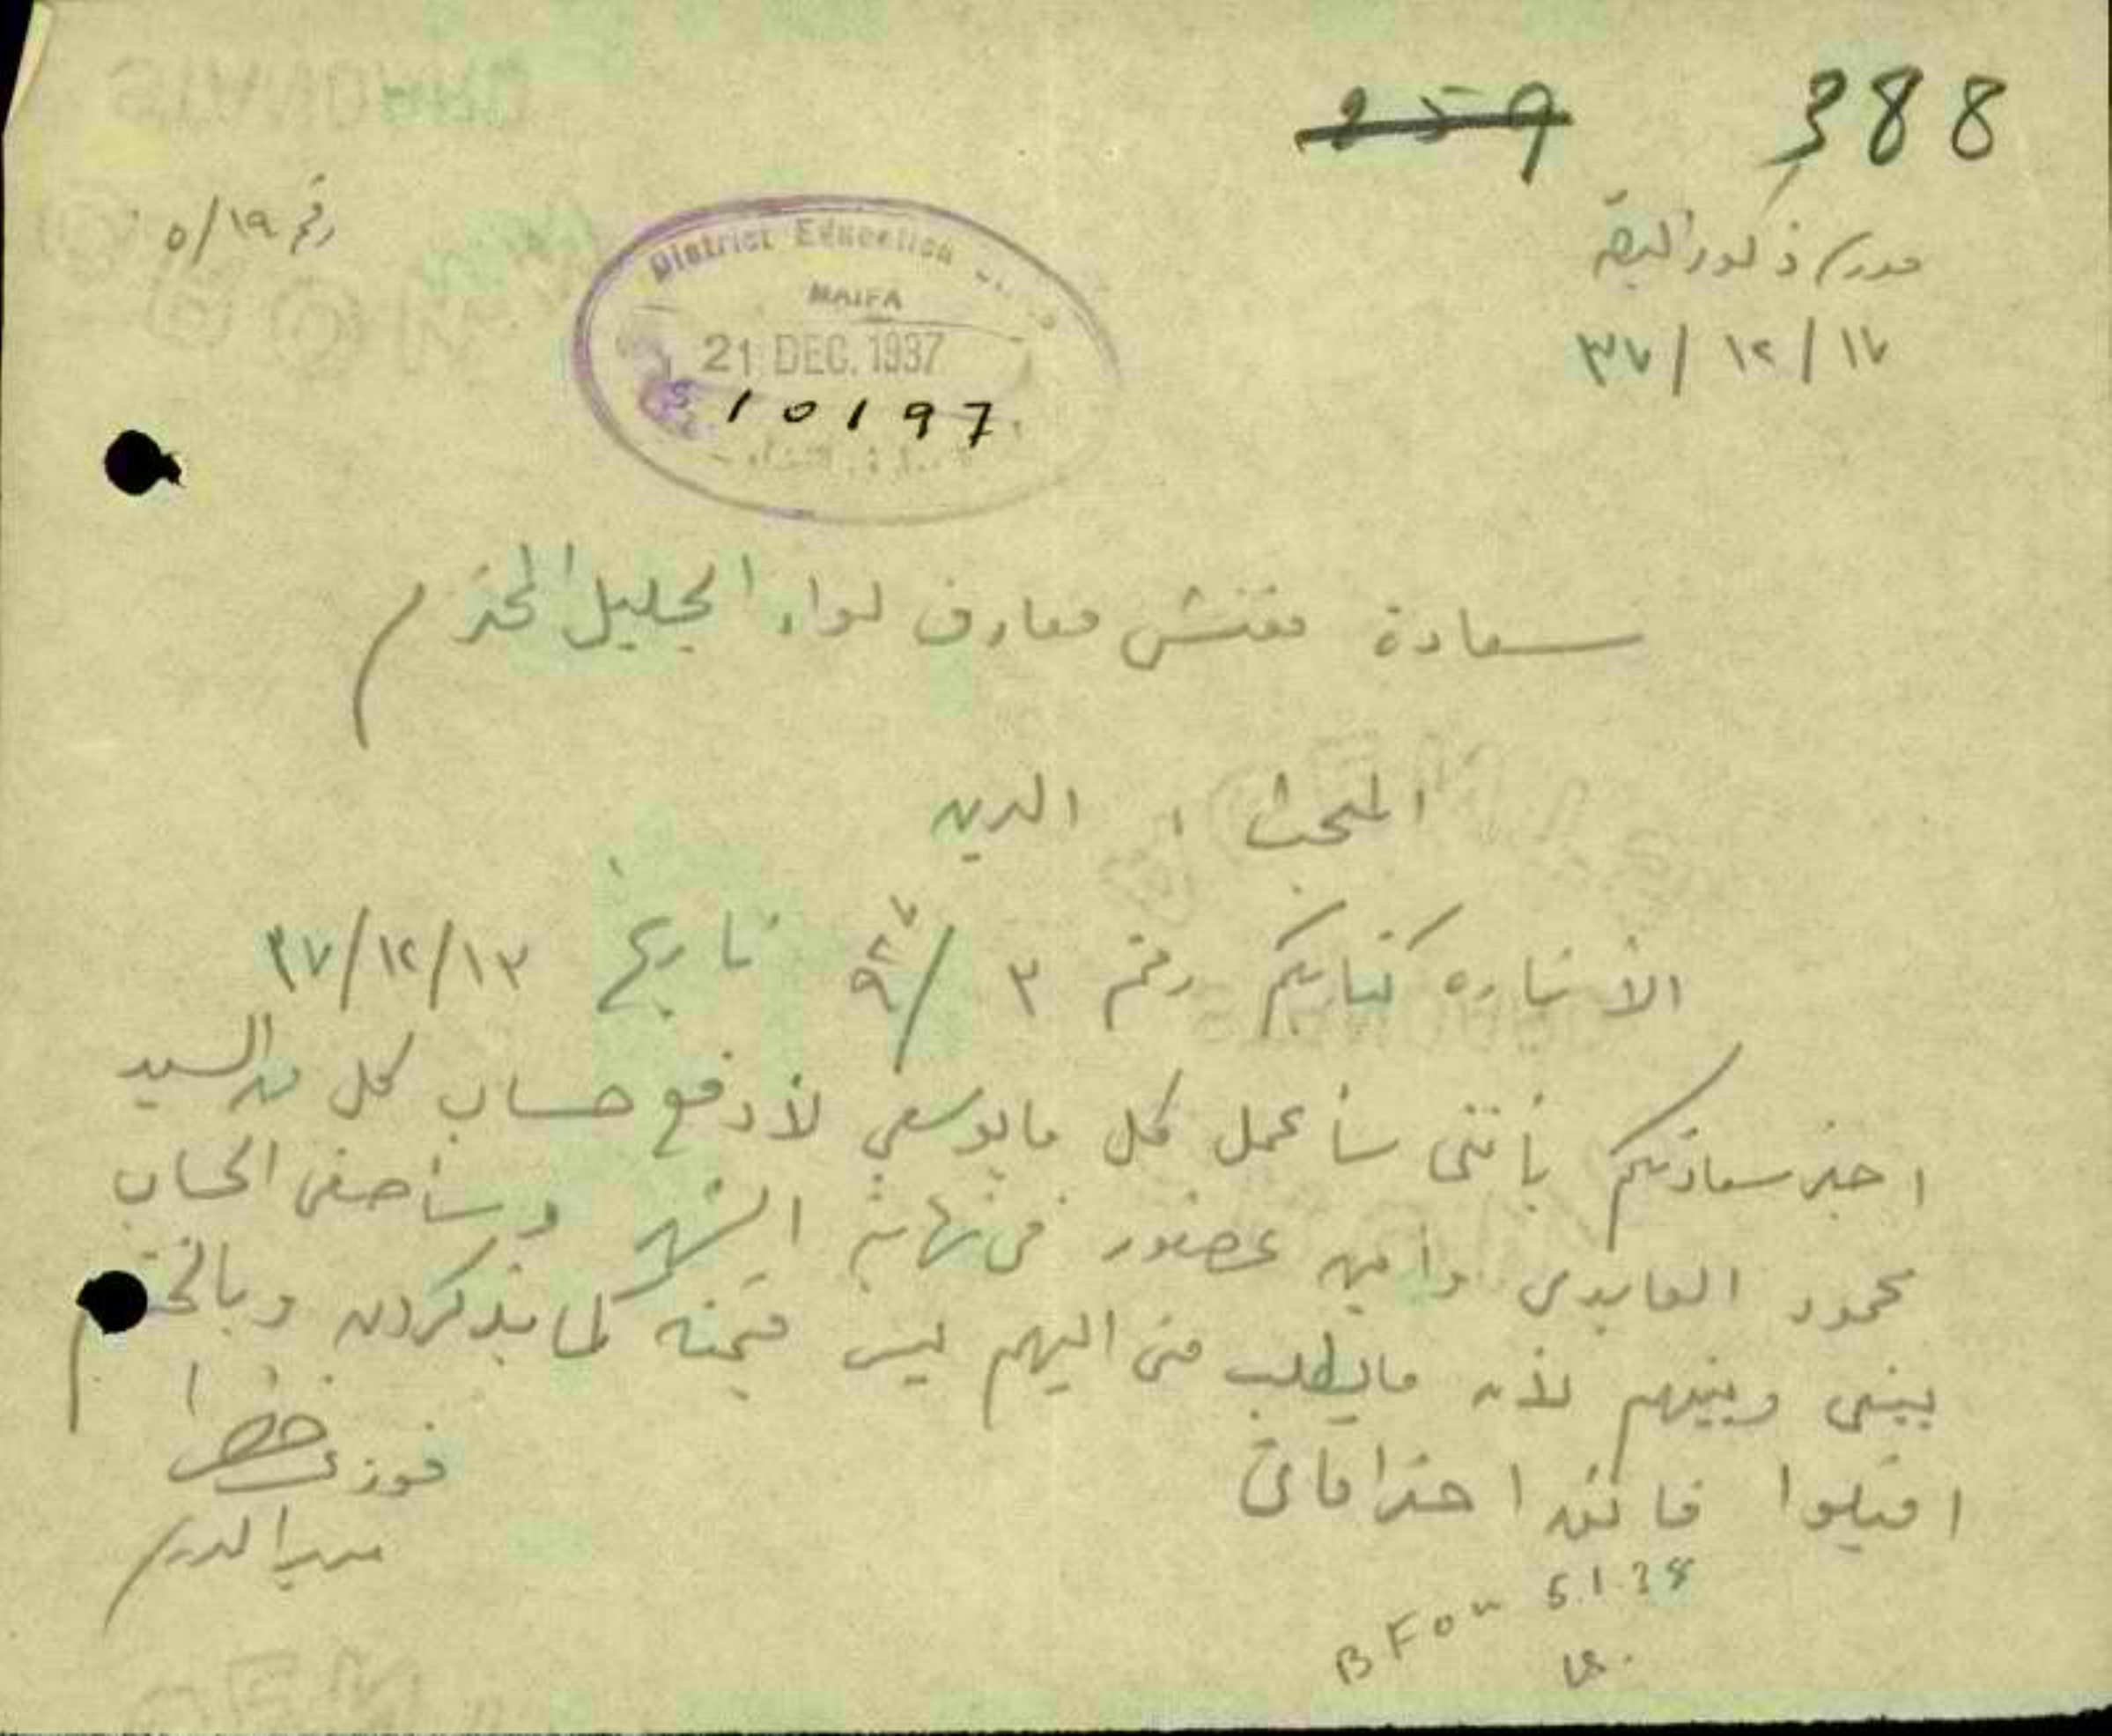 388
259
رقم ٥/١٩
District Education
HAIFA
21 DEC. 1937
10197
مدرسة ذكور البصة
٣٧/١٢/١٧
سعادة مفتش معارف لواء الجليل المحترم
المبحث : الدين
الأشاره كتابكم رقم ٣/ تاريخ ٣٧/١٢/١٣
اخبر سعادتكم بأنني سأعمل كل مابوسعي لأدفع حساب كل من السيد
محمود العابدي وامين عصفور في نهاية الشهر وسأصفي الحساب
بيني وبينهم لأن مايطلب مني اليهم ليس قيمته كما يذكرون وبالختام
اقبلوا فائق احتراماتي
فوزي خضرا
مدير المدرسة
BF on 5.1.38